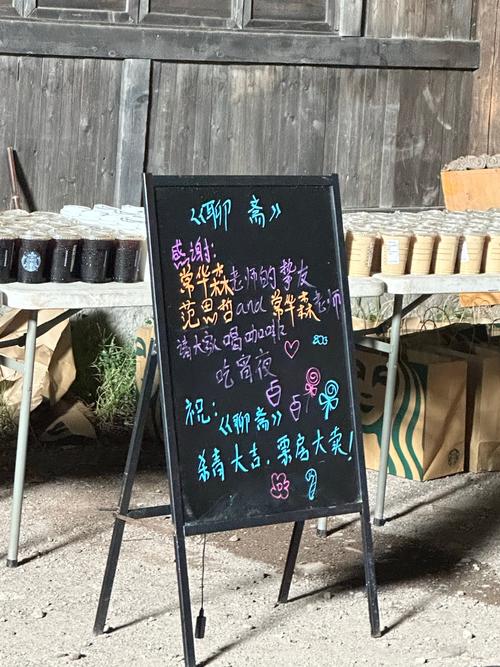 《聊斋》
感谢:
常华森老师的挚友
范思哲and常华森老师
请大家喝咖啡
吃宵夜
祝:《聊斋》
杀青大吉,票房大卖!